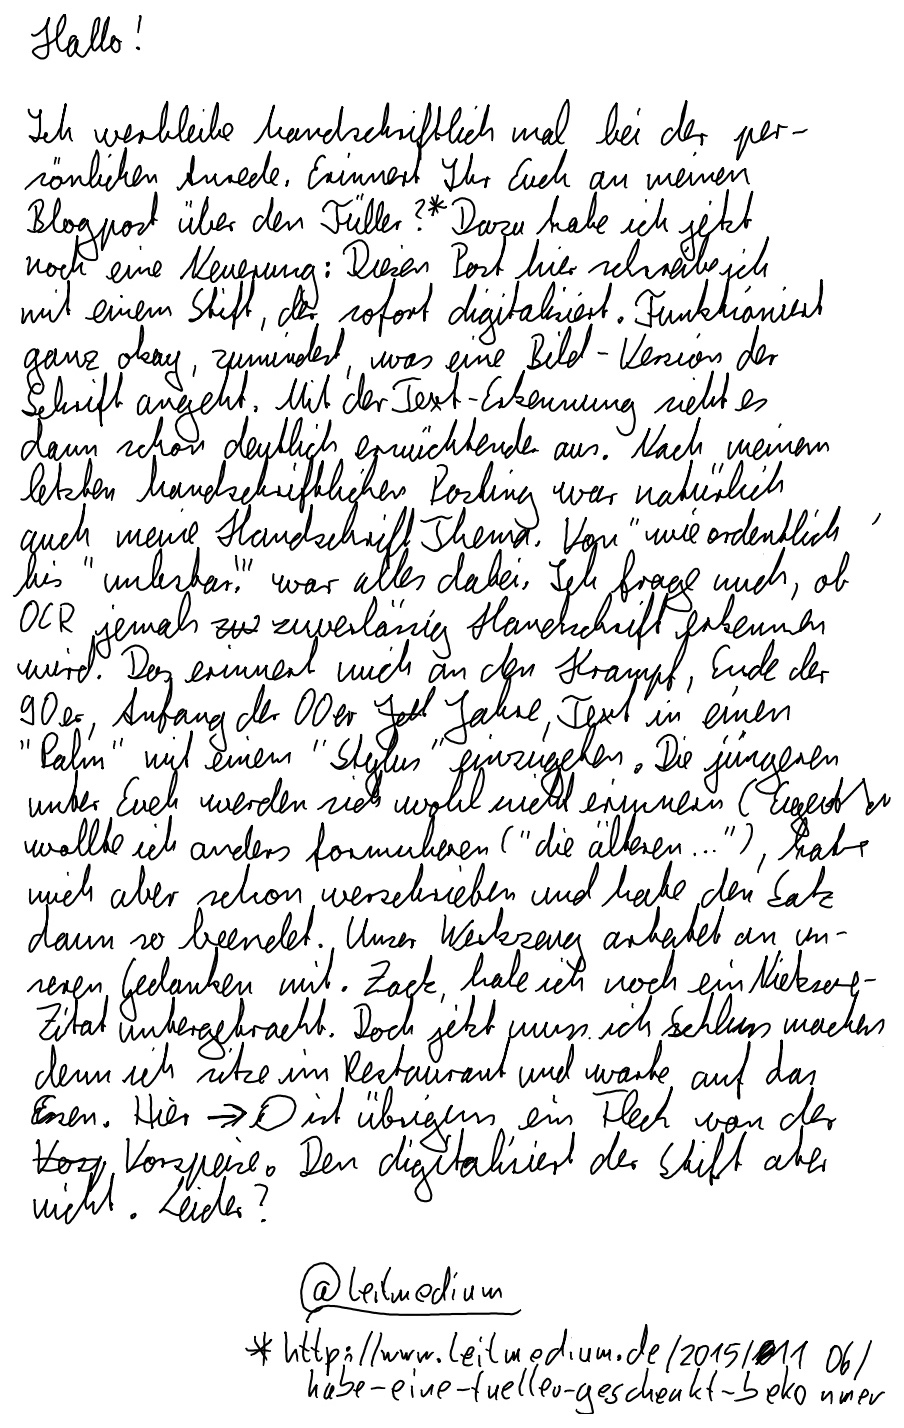 Hallo!
Ich verbleibe handschriftlich mal bei der per-
sönlichen Anrede. Erinnert Ihr Euch an meinen
Blogpost über den Füller?* Dazu habe ich jetzt
noch eine Neuerung: Diesen Post hier schreibe ich
mit einem Stift, der sofort digitalisiert. Funktioniert
ganz okay, zumindest, was eine Bild-Version der
Schrift angeht. Mit der Text-Erkennung sieht es
dann schon deutlich ernüchternder aus. Nach meinem
letzten handschriftlichen Posting war natürlich
auch meine Handschrift Thema. Von "wie ordentlich"
bis "unlesbar!" war alles dabei. Ich frage mich, ob
OCR jemals zuverlässig Handschrift erkennen
wird. Das erinnert mich an den Krampf, Ende der
90er, Anfang der 00er Jahre, Text in einen
"Palm" mit einem "Stylus" einzugeben. Die jüngeren
unter Euch werden sich wohl nicht erinnern (Eigentlich
wollte ich anders formulieren ("die älteren..."), habe
mich aber schon verschrieben und habe den Satz
dann so beendet. Unser Werkzeug arbeitet an un-
seren Gedanken mit. Zack, habe ich noch ein Nietzsche-
Zitat untergebracht. Doch jetzt muss ich Schluss machen
denn ich sitze im Restaurant und warte auf das
Essen. Hier → ist übrigens ein Fleck von der
Vorspeise. Den digitalisiert der Stift aber
nicht. Leider?
@leitmedium
* http://www.leitmedium.de/2015/11 06/
habe-eine-fueller-geschenkt-bekommen